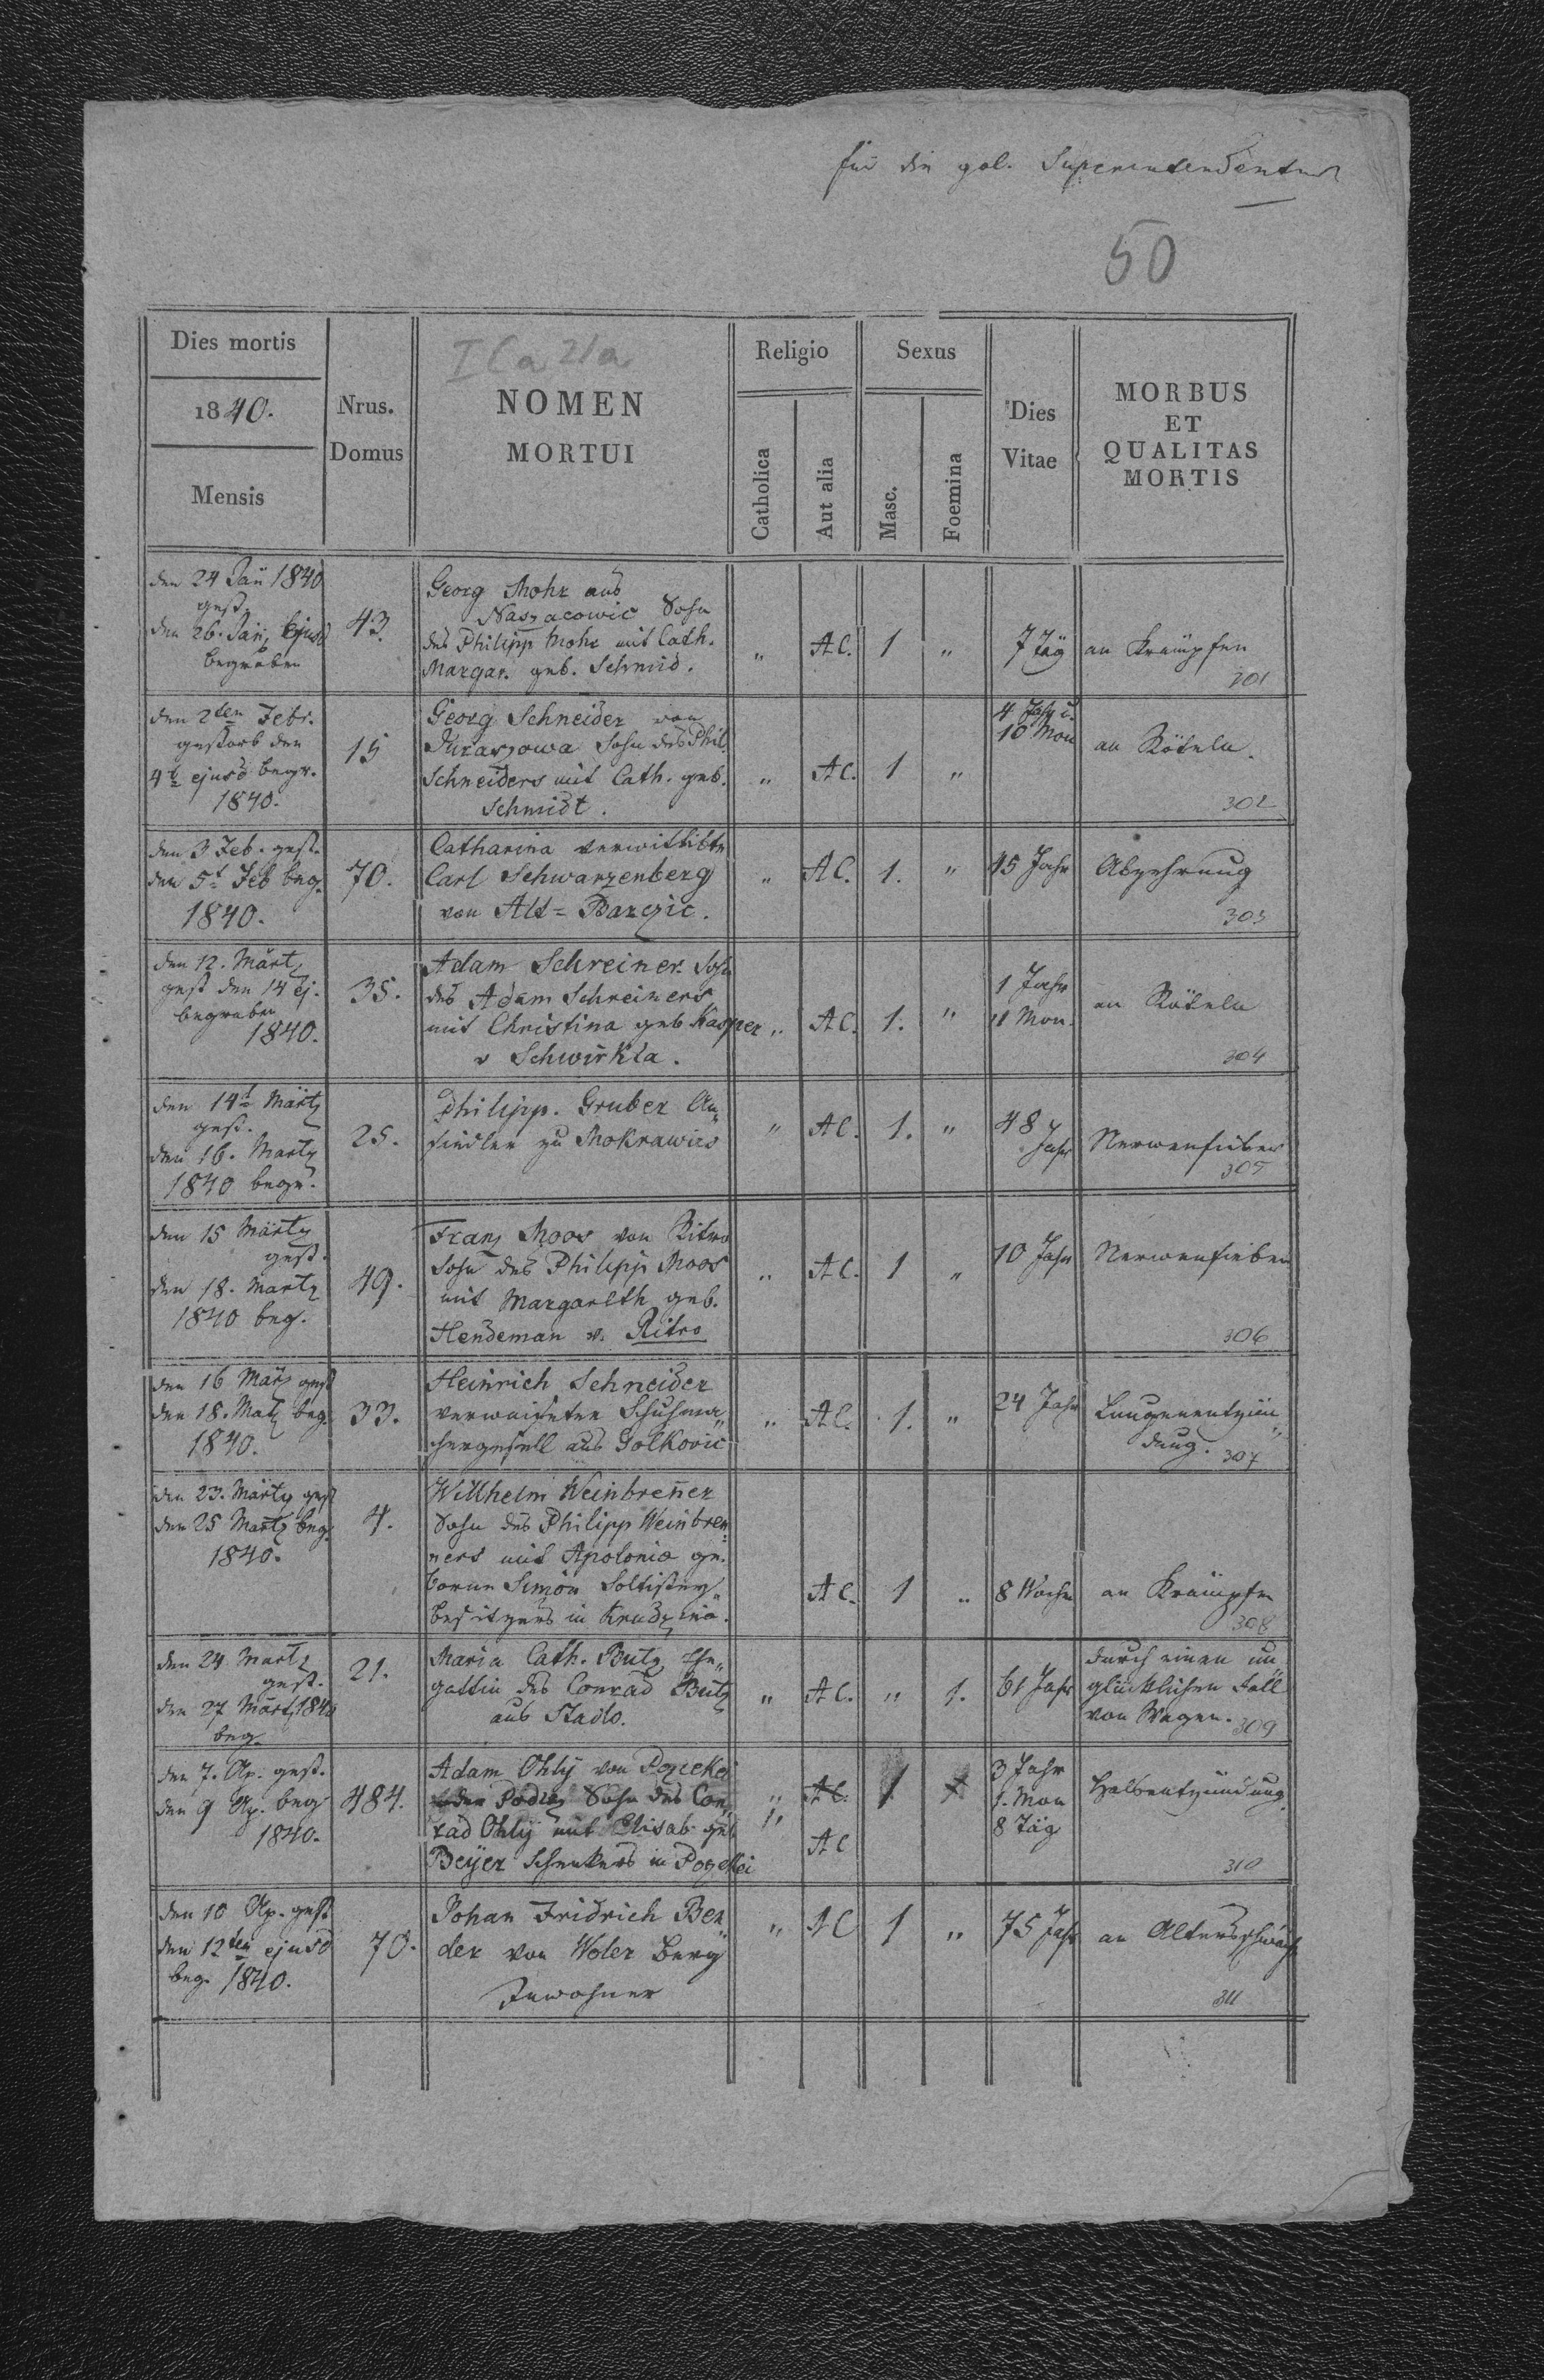 für die gal. Superintendentur
50
Dies mortis
1840.
Mensis
Nrus.
Domus
I C a 21a
NOMEN
MORTUI
Religio
Catholica
Aut alia
Sexus
Masc.
Foemina
Dies
Vitae
MORBUS
ET
QUALITAS
MORTIS
den 24 Jan 1840
gest.
den 26. Jan, Ejusd
begraben
43.
Georg Mohr aus
Naszacowic Sohn
des Philipp Mohr mit Cath.
Margar. geb. Schmid.
" AC. 1 "
7 Täg
an Krämpfen
301
den 2ten Febr.
gestorb den
4t ejusd begr.
1840.
15
Georg Schneider von
Juraszowa Sohn des Phil.
Schneiders mit Cath. geb.
Schmidt.
" AC. 1 "
4 Jahr u.
10 Mon
an Röteln.
302
den 3 Feb. gest.
den 5t Feb beg.
1840.
70.
Catharina verwittibte
Carl Schwarzenberg
von Alt=Barczic.
" AC. 1. "
45 Jahr
Abzehrung
303
den 12. Märtz
gest den 14 ej.
begraben
1840.
35.
Adam Schreiner Sohn
des Adam Schreiners
mit Christina geb Kasper
v Schwirkla.
" AC. 1. "
1 Jahr
11 Mon.
an Röteln
304
den 14t Märtz
gest.
den 16. Martz
1840 begr.
25.
Philipp. Gruber An„
siedler zu Mokrawies
" AC. 1. "
48
Jahr
Nervenfieber
305
den 15 Märtz
gest.
den 18. Martz
1840 beg.
49.
Franz Moos von Ritro
Sohn des Philipp Moos
mit Margareth geb.
Hendeman v. Ritro
" AC. 1 "
10 Jahr
Nervenfieber
306
den 16 März gest
den 18. Matz beg.
1840.
33.
Heinrich Schneider
verwaisster Schuhma„
chergesell aus Golkovic
" AC. 1. "
24 Jahr
Lungenentzün„
dung. 307
den 23. Märtz gest
den 25 Martz beg.
1840.
4.
Willhelm Weinbrenner
Sohn des Philipp Weinbren=
ners mit Apolonia ge.
borne Simon Soltissey„
besitzers in
AC. 1 "
8 Wochen
an Krämpfen
308
den 24 Martz
gest.
den 27 Märtz 1840
beg.
21.
Maria Cath. Butz Ehe„
gattin des Conrad Butz
aus Stadlo.
" AC. " 1.
61 Jahr
durch einen un„
glücklichen Fall
von Wagen. 309
den 7. Ap. gest.
den 9 Ap. beg
1840.
484.
Adam Ohlÿ von
Sohn des Con„
rad Ohlÿ mit Elisab. geb
Beÿer Schenkers in
" AC. 1
1. AC
3 Jahr
1. Mon
8 Täg
Halsentzündung.
310
den 10 Ap. gest
den 12ten ejusd
beg. 1840.
70.
Johan Fridrich Ben„
der von Woler Berg
Inwohner
" AC 1 "
75 Jahr
an Altersschwäch
311